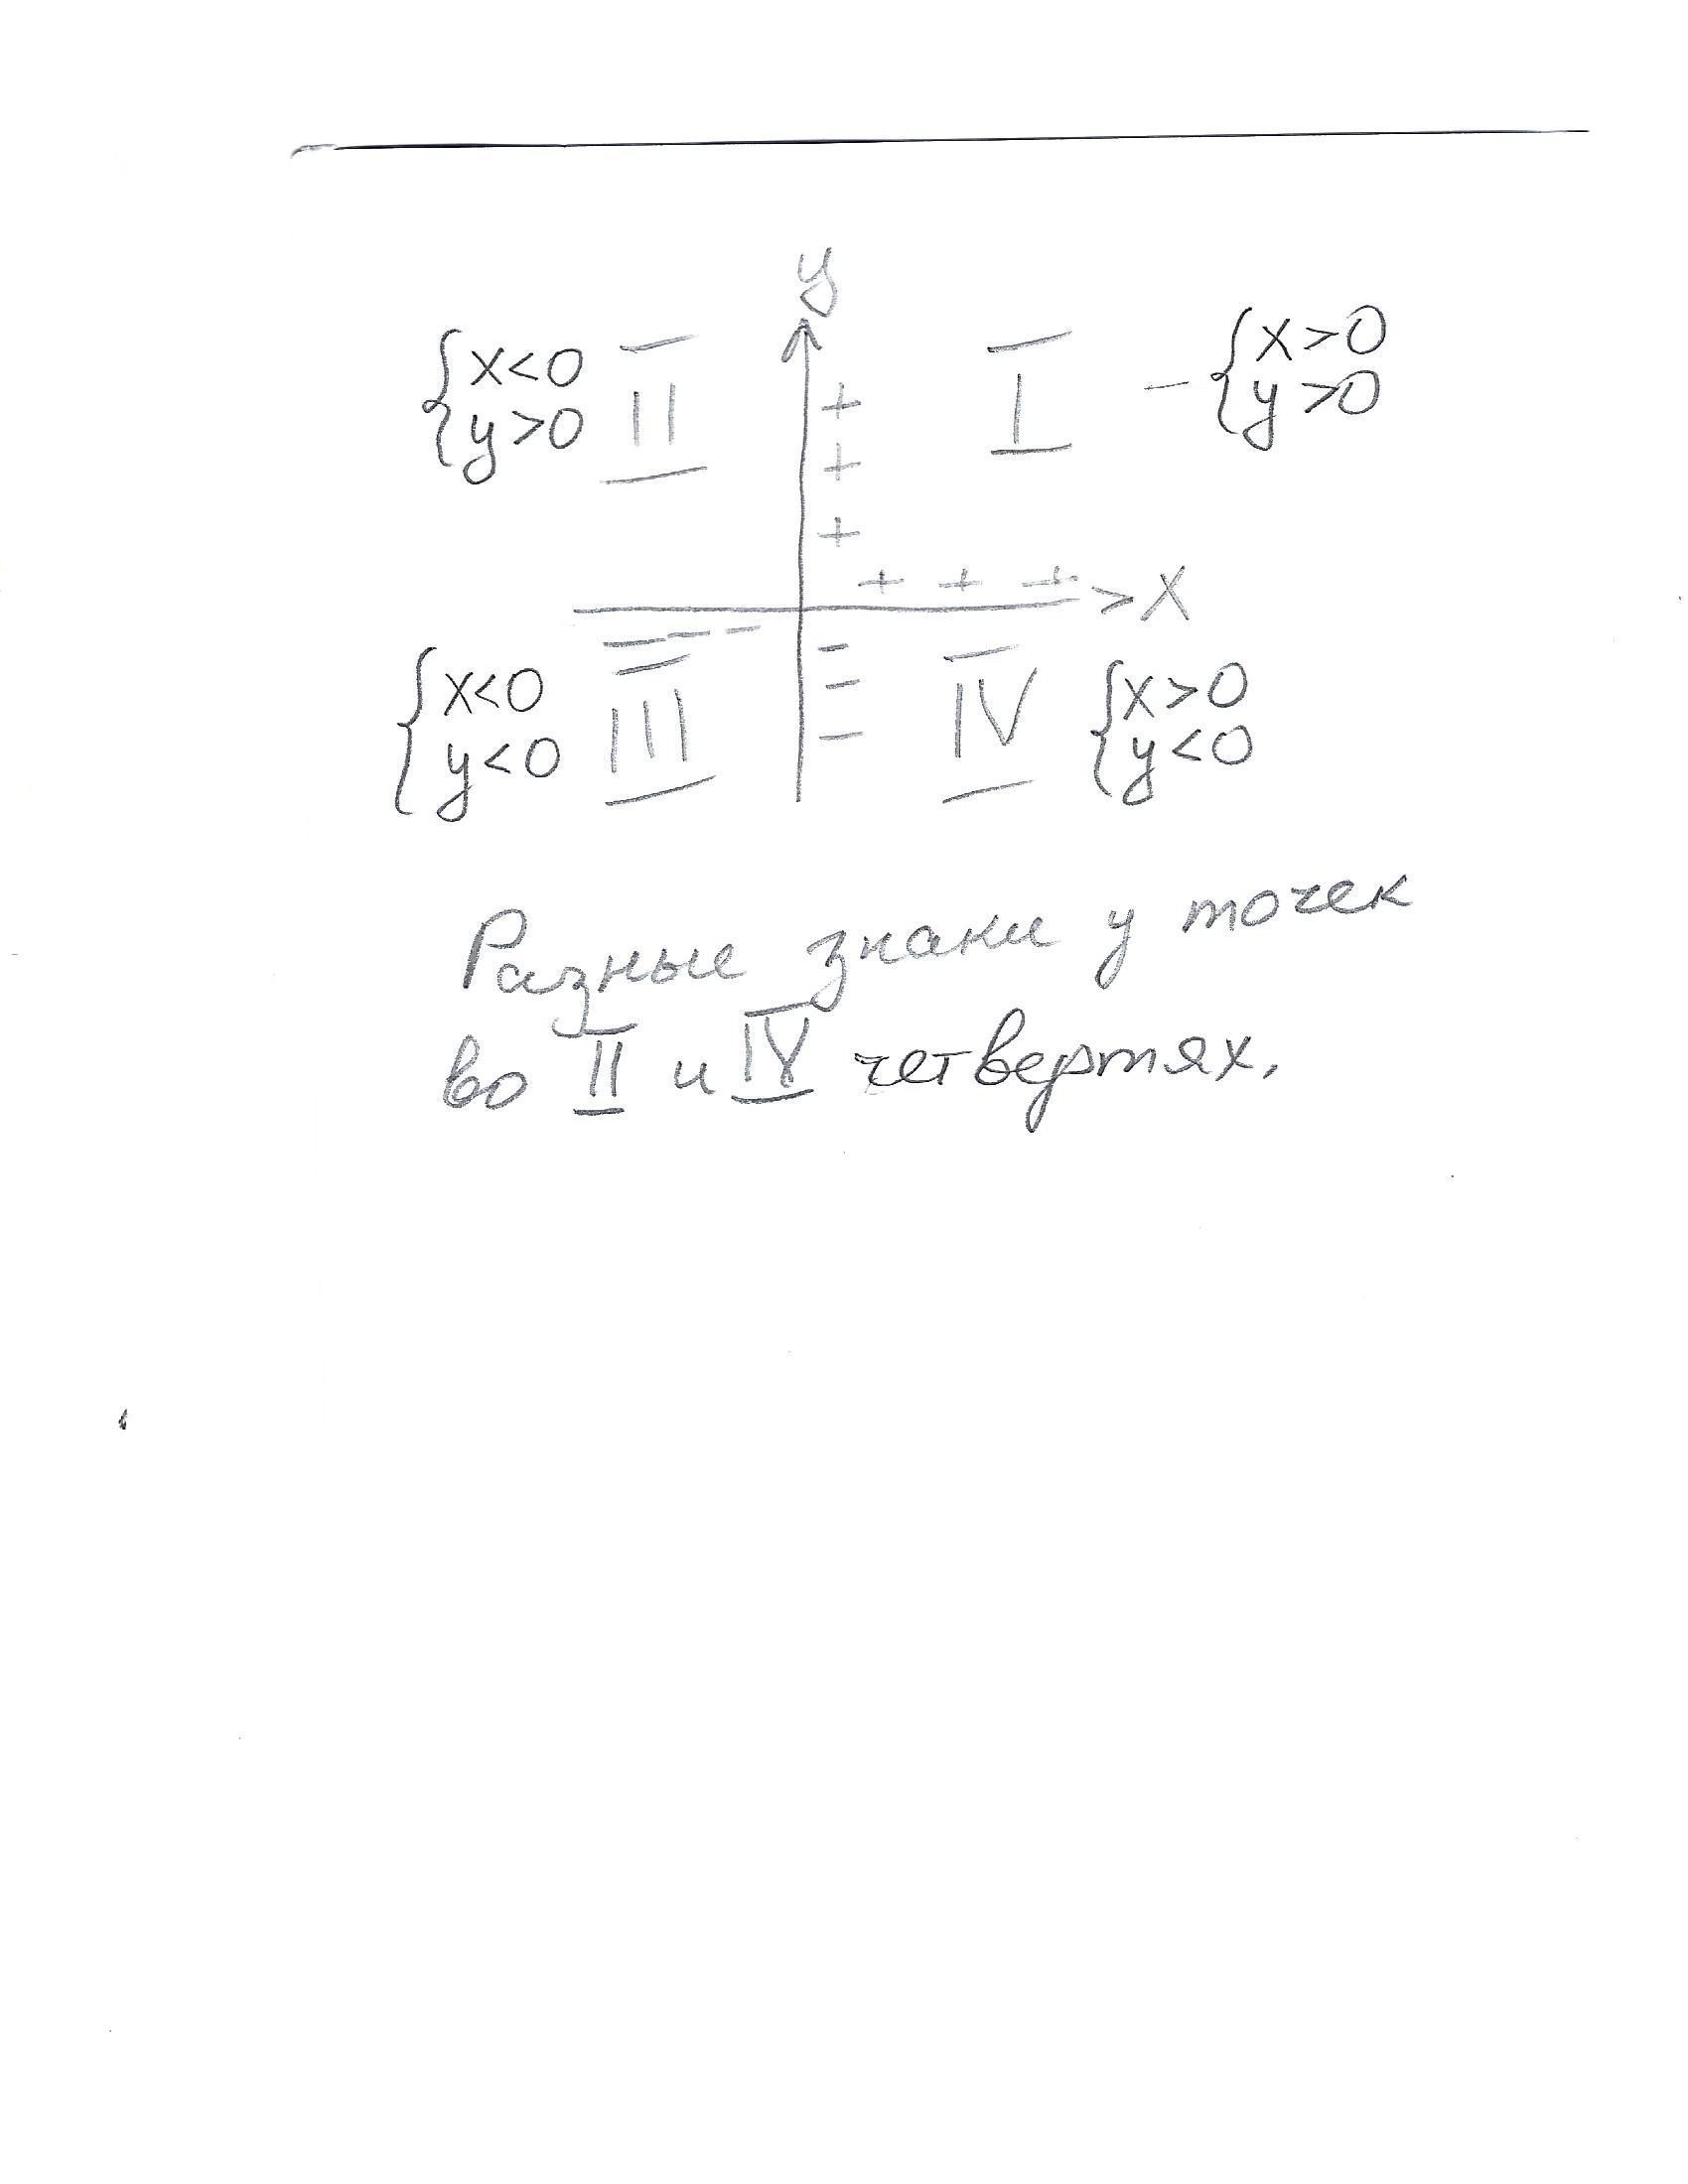 y
{x<0 II I - {x>0
{y>0 {y>0
+
+
+
+ + + >X
- - - -
{x<0 III - IV {x>0
{y<0 - {y<0
Разные знаки у точек
во II и IV четвертях.